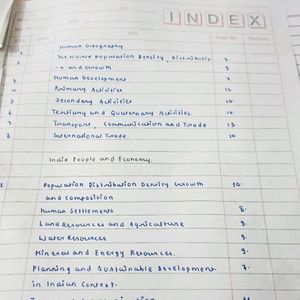 INDEX
Date Title Page No. Remarks
Human Geography
1. The World Population Density, Distributio
-n and Growth
3. Human Development
4. Primary Activities 10.
5. Secondary Activities 10.
6. Tertiary and Quaternary Activities 10.
7. Transport, Communication and Trade 13.
8. International Trade. 10.
India People and Economy.
1. Population Distribution Density Growth 10.
and Composition
Human Settlements 8.
Land Resources and Agriculture 9.
Water Resources 9.
Mineral and Energy Resources. 9.
Planning and Sustainable Development 7.
in Indian Context.